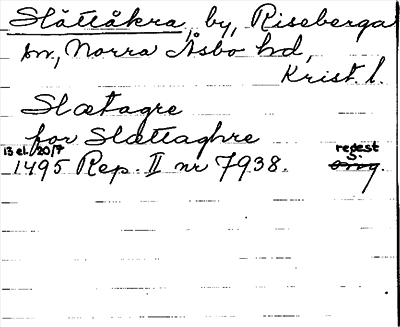 Slättåkra, by, Riseberga
sn, Norra Åsbo hd,
Krist. l.
Slætagre
for Slættaghre
13 el. 20/7
1495 Rep. II nr 7938. regest
s. omg.